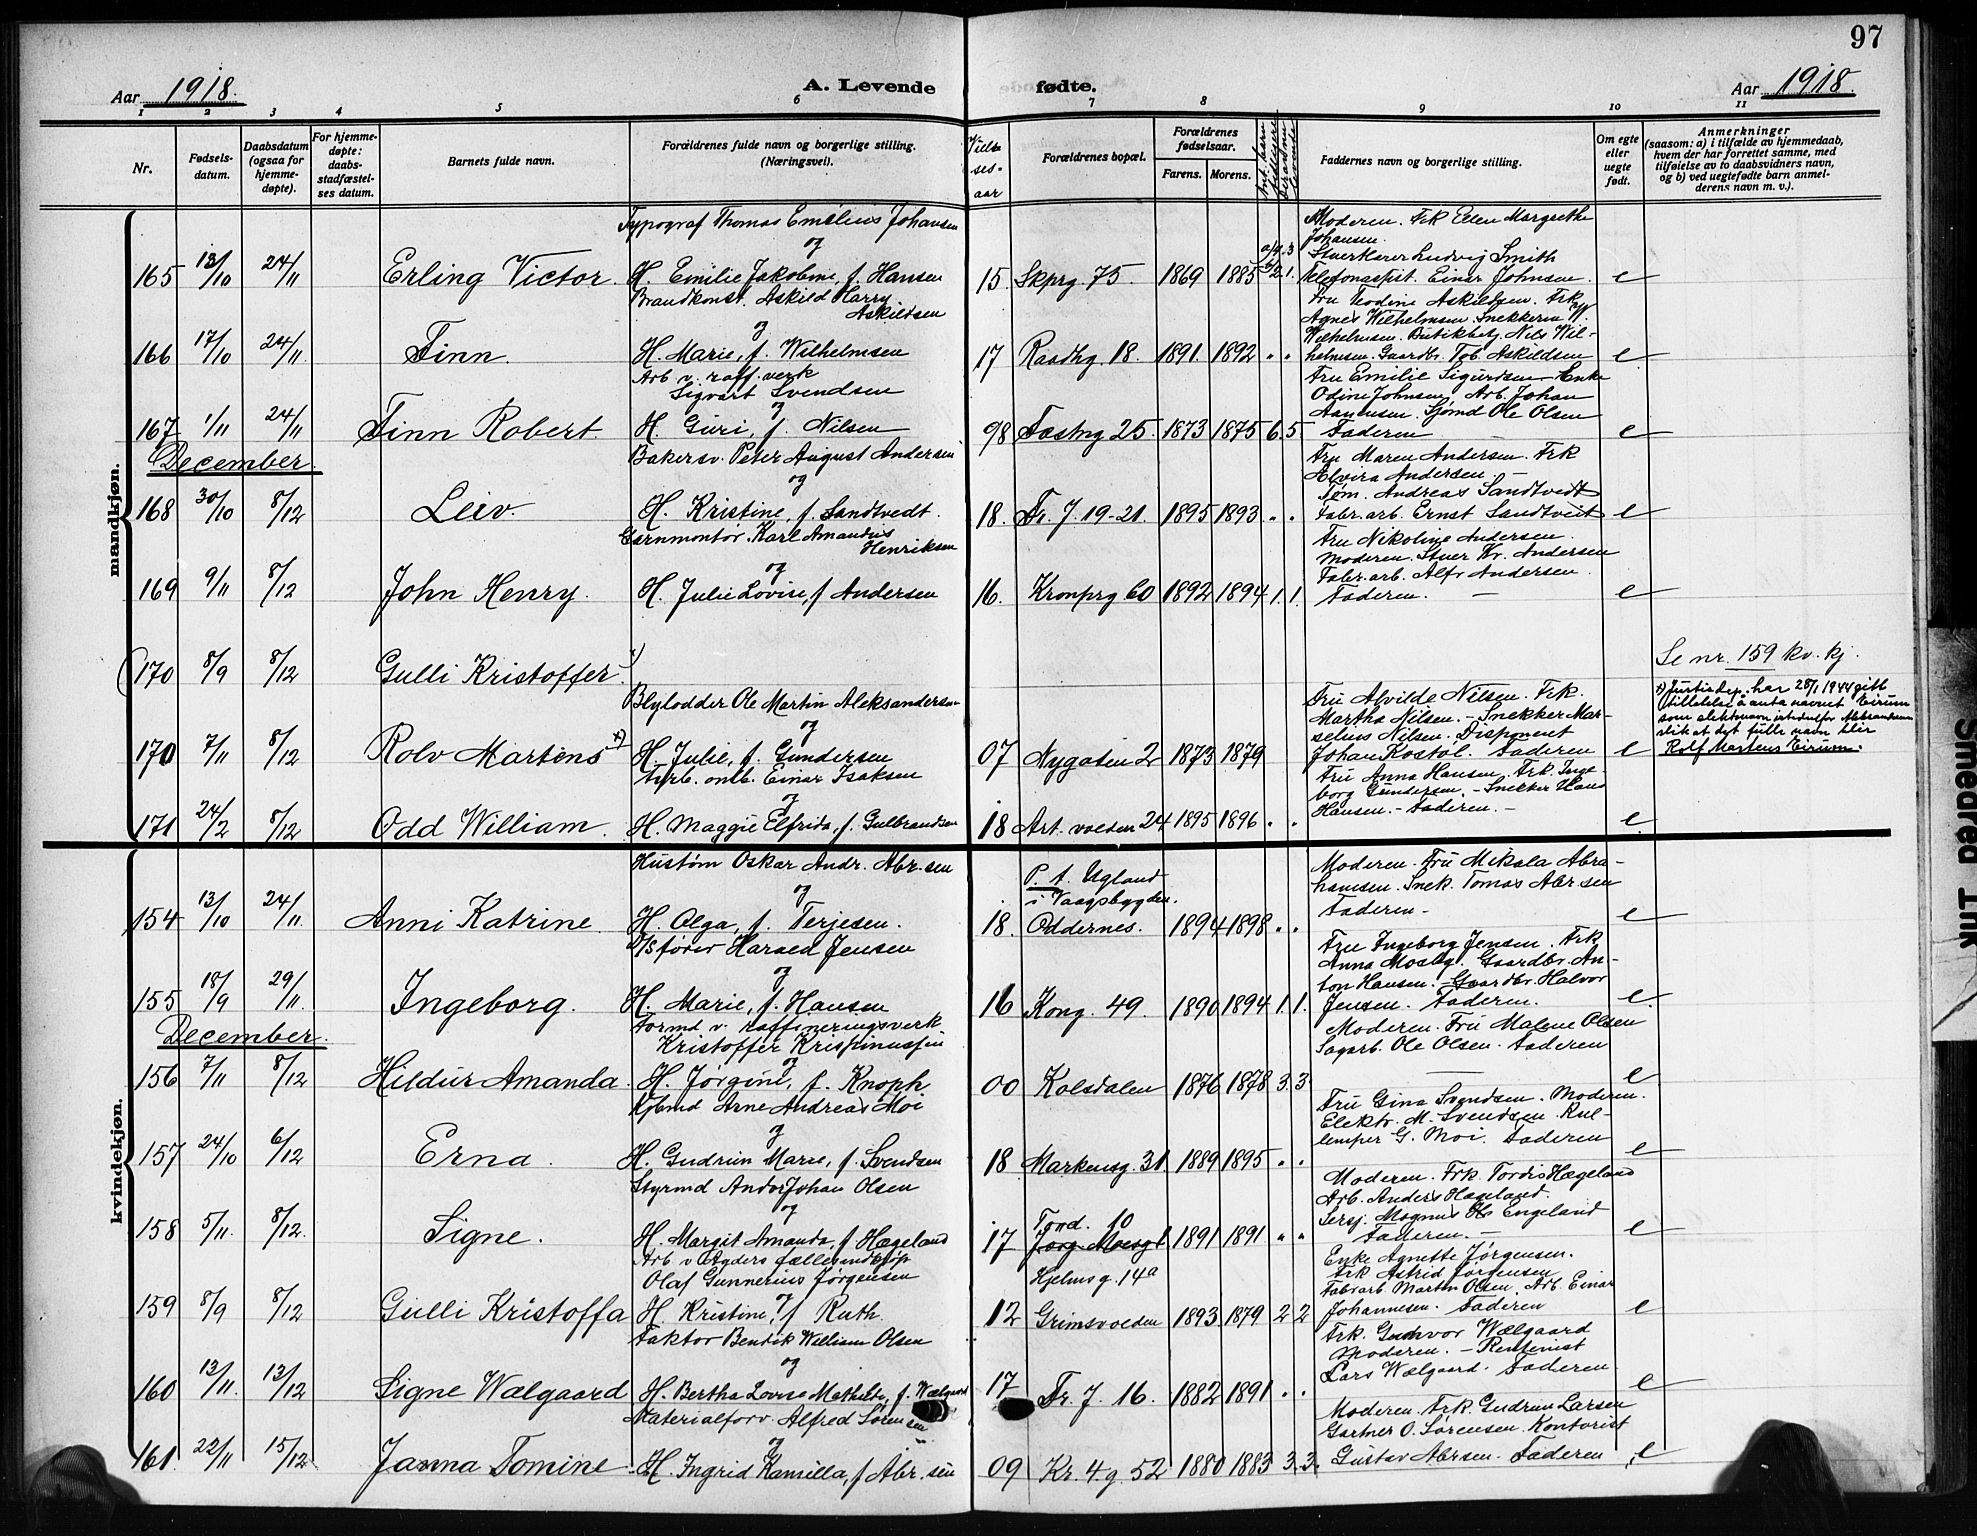 97
Aar 1918. A. Levende fødte. Aar 1918.
1 2 3 4 5 6 7 8 9 10 11
Nr.
Fødsels-
datum.
Daabsdatum
(ogsaa for
hjemme-
døpte).
For hjemme-
døpte:
daabs-
stadfæstel-
ses datum.
Barnets fulde navn.
Forældrenes fulde navn og borgerlige stilling.
(Næringsvei).
Vielses-
aar
Forældrenes bopæl.
Forældrenes
fødselsaar.
Farens. Morens.
Faddernes navn og borgerlige stilling.
Om egte
eller
uegte
født.
Anmerkninger
(saasom: a) i tilfælde av hjemmedaab,
hvem der har forrettet samme, med
tilføielse av to daabsvidners navn,
og b) ved uegtefødte barn anmel-
derens navn m. v.).
mandkjøn.
Typograf Thomas Emelius Johansen
og
165 13/10 24/11 Erling Victor. H. Emilie Jakobine, f. Hansen 15 Skprg. 75. 1869 1885
Moderen. Frk Ellen Margrethe
Johansen.
Stuerkarer Ludvig Smith
Telefonaspit. Einar Johnsen. e
Brandkonst. Askild Harry
Askildsen
og
166 17/10 24/11. Finn. H. Marie, f. Wilhelmsen 17 Raadhg. 18. 1891 1892 " "
Fru Teodine Askildsen. Frk
Agnes Wilhelmsen. Snekkerm W.
Wilhelmsen. Butikbet. Nils Wil-
helmsen. Gaardbr. Tob. Askildsen e
Arb v. raff. verk
Sigvart Svendsen
og
167 1/11 24/11 Finn Robert. H. Guri, f. Nilsen 98 Fæstng 25. 1873 1875 6 5
Fru Emilie Sigurdsen Enke
Odine Johnsen, Arb. Johan
Aanensen. Sjømd Ole Olsen
Faderen e
December.
Bakersv. Peter August Andersen
og
168 30/10 8/12 Leiv. H. Kristine, f. Sandtvedt. 18. Fr. 7. 19-21. 1895 1893 " "
Fru Maren Andersen. Frk
Elvira Andersen. –
Tøm. Andreas Sandtvedt
Fabr. arb. Ernst Sandtveit e
Garnmontør. Karl Amandus
Henriksen
og
169 9/11 8/12 John Henry. H. Julie Lovise, f Andersen 16. Kronprg 60 1892 1894 1. 1.
Fru Nikoline Andersen.
Moderen. Stuer Kr. Andersen
Fabr. arb. Alfr Andersen
Faderen. – e
(170 8/9 8/12 Gulli Kristoffer Se nr. 159 kv. kj.
Blylodder Ole Martin Aleksandersen
og
170 7/11 8/12 Rolv Martens x) H. Julie, f. Gundersen 07 Nygaten 2 1873 1879
Fru Alvilde Nilsen. Frk.
Martha Nilsen. – Snekker Mar-
selius Nilsen. Disponent
Johan Kostøl. Faderen e
x) Justisdep. har 28/1 1944 gitt
tillatelse å anta navnet Eirum
som slektsnavn istedetfor Aleksandersen
slik at det fulle navn blir
Rolf Martens Eirum.
Arb. Einar Isaksen
og
171 24/2 8/12 Odd William. H. Maggie Elfrida, f. Gulbrandsen 18 Art. volden 24 1895 1896 " "
Fru Anna Hansen. Frk. Inge-
borg Gundersen. – Snekker Hans
Hansen. – Faderen. – e
kvindekjøn.
Hustøm Oskar Andr. Abr.sen
og
154 13/10 24/11. Anni Katrine H. Olga, f. Terjesen. 18.
P. t. Ugland
i Vaagsbygden.
Oddernes. 1894 1898 " "
Moderen. Fru Mikala Abra-
hamsen. Snek. Tomas Abr.sen
Faderen – e
D/S fører Harald Jensen
og
155 18/9 29/11. Ingeborg. H. Marie, f. Hansen 16 Kong. 49. 1890 1894 1. 1.
Fru Ingeborg Jensen. Frk
Anna Mosby. Gaardbr. An-
ton Hansen. – Gaardbr. Halvor
Jensen. Faderen. e
December.
Formd v. raffineringsverk.
Kristoffer Krispinussen
og
156 7/11 8/12 Hildur Amanda. H. Jørgine, f. Knoph 00 Kolsdalen 1876 1878 3. 3.
Moderen. Fru Malene Olsen
Sagarb. Ole Olsen. Faderen
e
Kjbmd Arne Andreas Moi
og
157 24/10 6/12 Erna. H. Gudrun Marie, f. Svendsen 18 Markensg. 31 1889 1895 " "
Fru Gina Svendsen. Moderen.
Elektr. M. Svendsen. Rul-
lemper G. Moi. Faderen e
Styrmd Andor Johan Olsen
og
158 5/11. 8/12. Signe. H. Margit Amanda, f Hægeland 17
Tord. 10
Jørg Moesg 1
Kjelmsg. 14a
1891 1891 " "
Moderen. Frk. Tordis Hægeland
Arb. Anders Hægeland.
Sersj. Magnus Engeland
Faderen. – e
Arb v Agders fællesindkjøp
Olaf Gunnerius Jørgensen
og
159 8/9 8/12 Gulli Kristoffa H. Kristine, f Ruth 12 Grimsvolden 1893 1879 2 2
Enke Agnette Jørgensen.
Frk Astrid Jørgensen
Fabr arb. Marten Olsen, Arb. Einar
Johannesen. Faderen e
Faktor Bendik William Olsen
og
160 13/11. 13/12 Signe Wælgaard H. Bertha Lovise Mathilde, f. Wælgaard 17 Fr. 7. 16. 1882 1891 " "
Frk. Gudvor Wælgaard
Moderen. – Rentenist
Lars Wælgaard. Faderen e
Materialforv. Alfred Sørensen
og
161. 22/11 15/12 Janna Tomine H. Ingrid Kamilla, f Abr.sen 09 Kr. 4. g. 52 1880 1883 3. 3.
Moderen. Frk. Gudrun Larsen
Gartner O. Sørensen. Kontorist
Gustav Abrsen. Faderen e
Smeared Ink